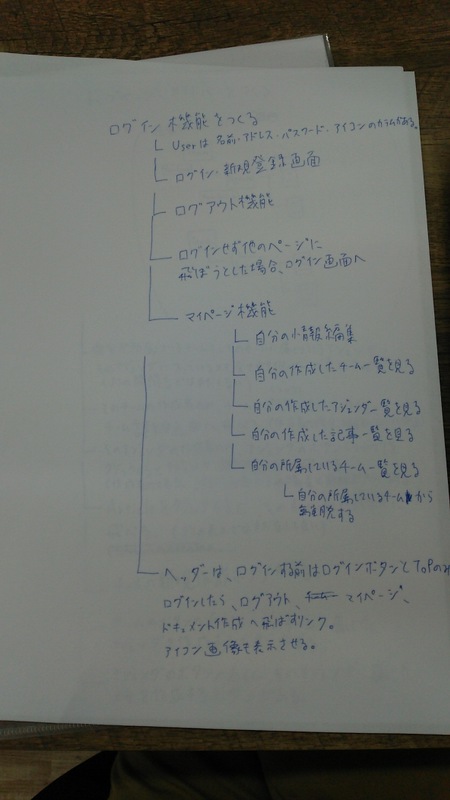 ログイン機能をつくる
Userは名前・アドレス・パスワード・アイコンのカラムがある。
ログイン・新規登録画面
ログアウト機能
ログインせず他のページに
飛ぼうとした場合、ログイン画面へ
マイページ機能
自分の情報編集
自分の作成したチーム一覧を見る
自分の作成したアジェンダ一覧を見る
自分の作成した記事一覧を見る
自分の所属しているチーム一覧を見る
自分の所属しているチームから
離脱する
ヘッダーは、ログインする前はログインボタンとTOPのみ
ログインしたら、ログアウト、マイページ、
ドキュメント作成へ飛ばすリンク。
アイコン画像も表示させる。